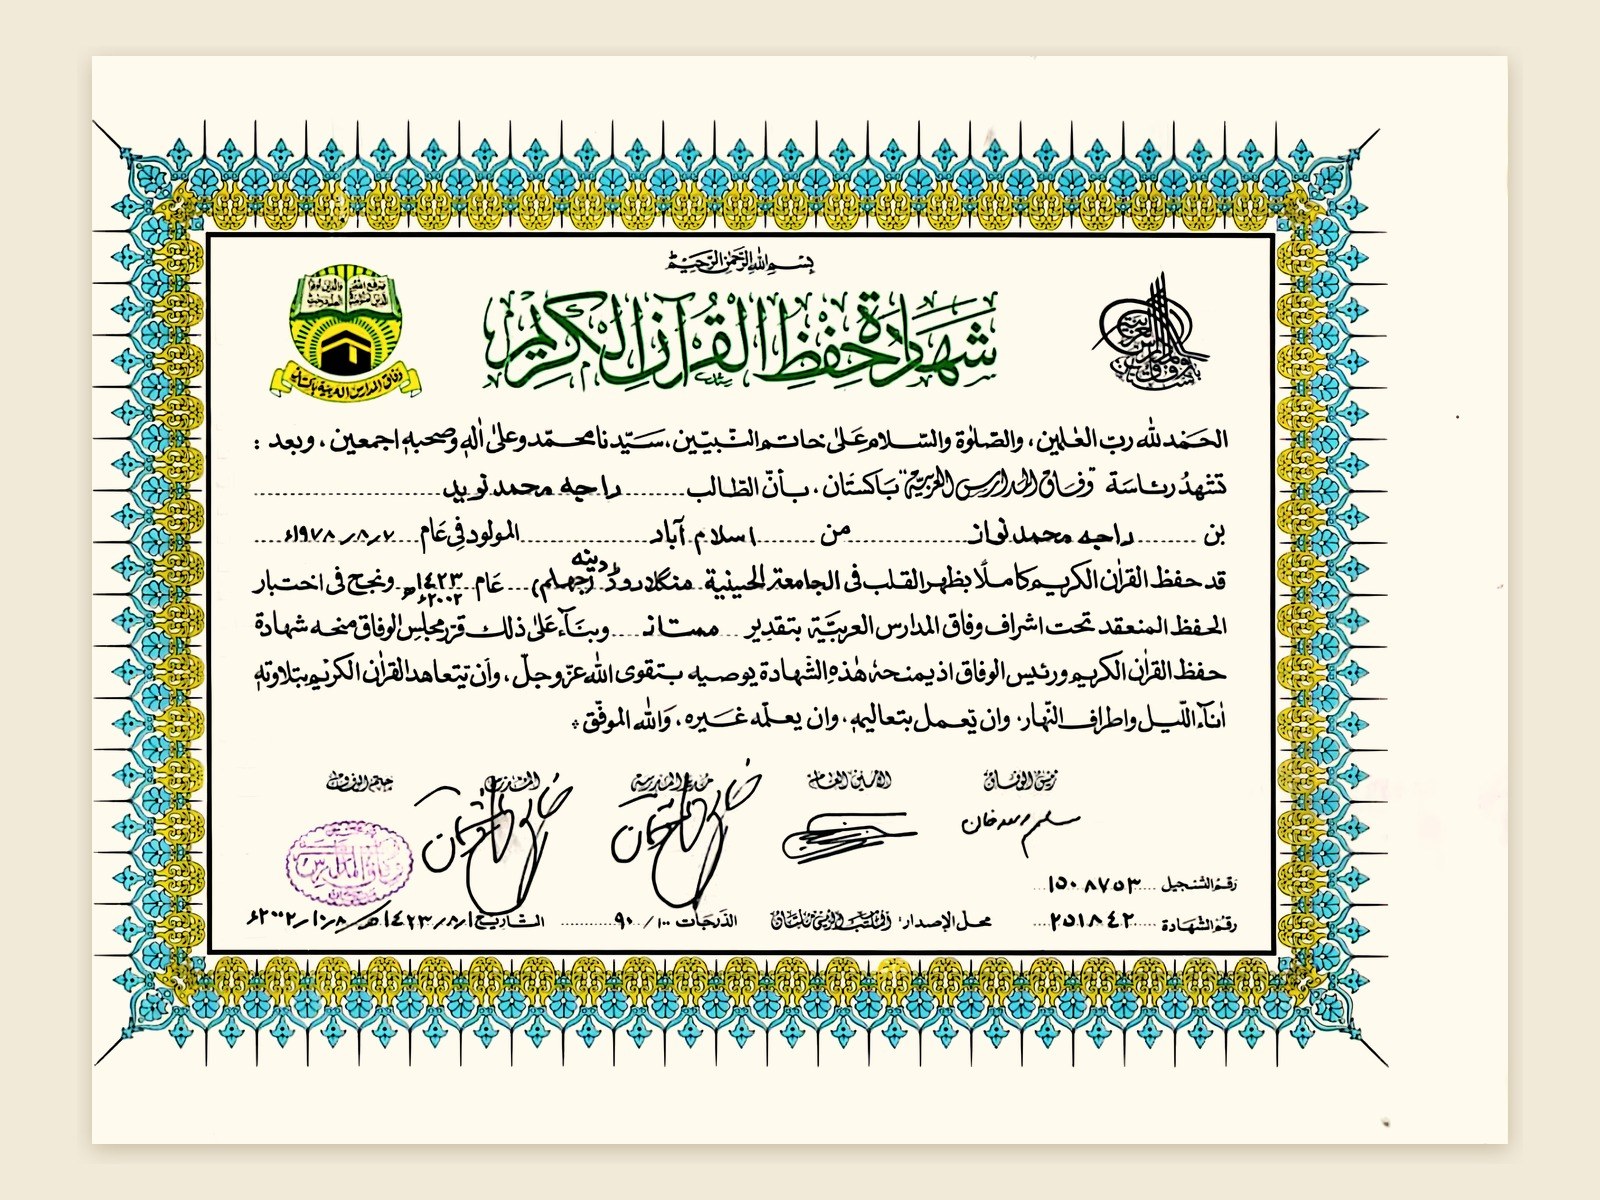 بسم الله الرحمن الرحيم
شهادة حفظ القرآن الكريم
وفاق المدارس العربية باكستان
الحمد لله رب العٰلمين، والصلوٰة والسّلام علىٰ خاتم النّبيّين، سيّدنا محمّد وعلىٰ اٰلهٖ وصحبهٖ اجمعين، وبعد :
تشهدُ رئاسَة "وفاق المدارس العربيّة" باكستان، بأنّ الطّالب راجه محمد نويد
بن راجه محمد نواز من اسلام آباد المولود في عَام ٧/٨/١٩٧٨ء
دينه
قد حفظ القراٰن الكريم كاملًا بظهر القلب فى الجامعة الحينية منگلا روڈ (جهلم) عَام ١٤٢٣ ونجح فى اختبار
٢٠٠٢ء
الحفظ المنعقد تحت اشراف وفاق المدارس العربيّة بتقدير ممتاز وبنآء علىٰ ذلك قرّر مجلس الوفاق منحه شهادة
حفظ القراٰن الكريم ورئيس الوفاق اذ يمنحهٗ هٰذهِ الشّهادة يوصيه بتقوى الله عزّوجلّ، وأن يّتعاهد القراٰن الكريم بتلاوتهٖ
اٰنآء اللّيل واطراف النّهار، وان يّعمل بتعاليمهٖ، وان يعلّمه غيره، والله الموفّق
رئيس الوفاق الأمين العام
سليم الله خان
رقم التسجيل ١٥٠٨٧٥٣
رقم الشهادة ٢٥١٨٤٢ محل الإصدار: الدّرجات ١٠٠/٩٠ التاريخ ١/٨/١٤٢٣هـ ٨/١٠/٢٠٠٢ء